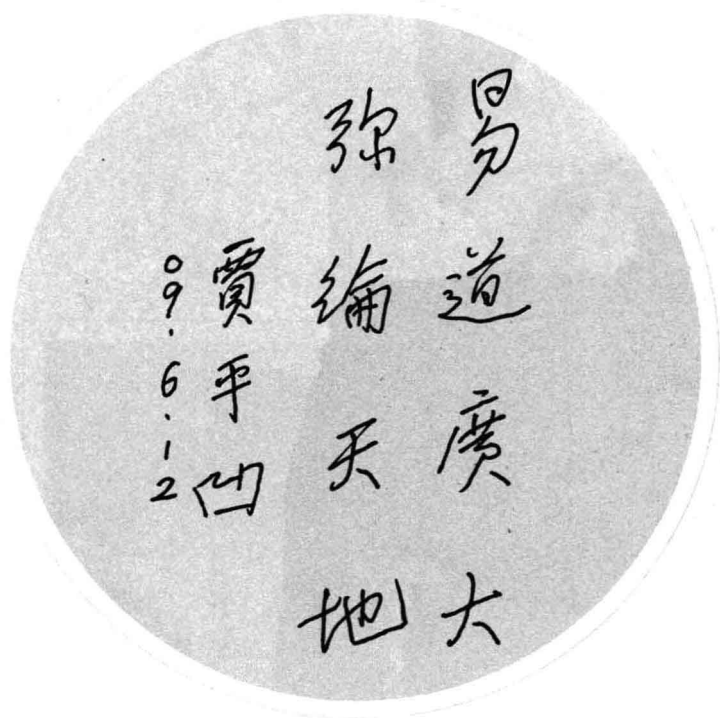 易道廣大
弥綸天地
賈平凹
09.6.12